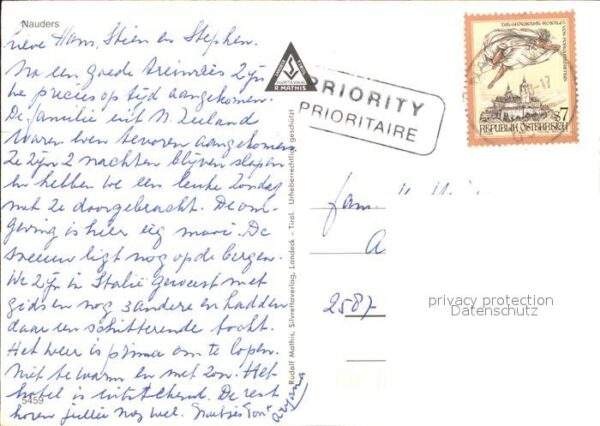 Nauders
Lieve Hans, Stien en Stephen.
Na een goede treinreis zijn
we precies op tijd aangekomen.
De familie uit N. Zeeland
waren even tevoren aangekomen
Ze zijn 2 nachten blijven slapen
en hebben we een leuke zondag
met ze doorgebracht. De om-
geving is hier erg mooi. De
sneeuw ligt nog op de bergen.
We zijn in Italië geweest met
gids en nog 3 andere en hadden
daar een schitterende tocht.
Het weer is prima om te lopen.
Niet te warm en met zon. Het
hotel is uitstekend. De rest
horen jullie nog wel.
5459
R. MATHIS
Rudolf Mathis, Silvrettaverlag, Landeck - Tirol. Urheberrechtlich geschützt
PRIORITY
PRIORITAIRE
S7
REPUBLIK ÖSTERREICH
Fam.
A
2587
privacy protection
Datenschutz